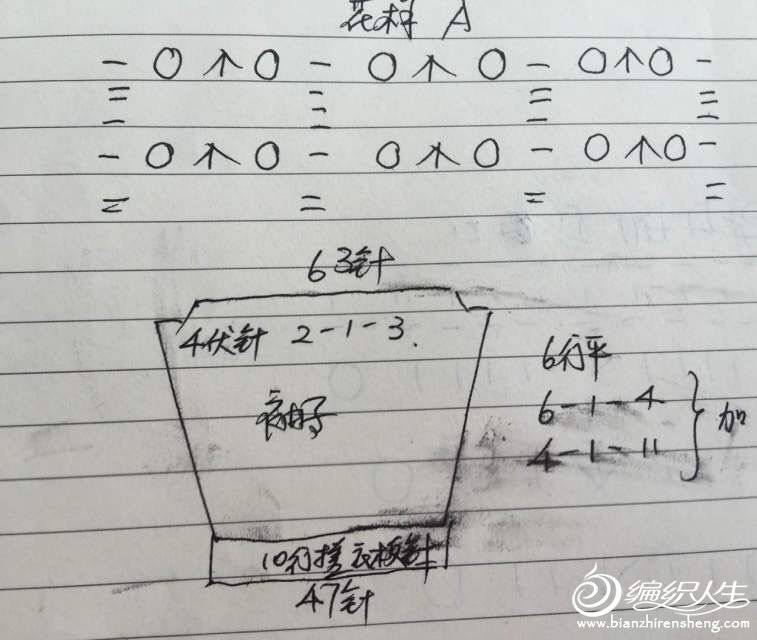 花样 A
- O 个 O - O 个 O - O 个 O -
= - = =
- - - -
- O 个 O - O 个 O - O 个 O -
= = = =
63针
4伏针 2-1-3.
袖子
6行平
6-1-4
4-1-11
加
10行搓衣板针
47针
编织人生
www.bianzhirensheng.com